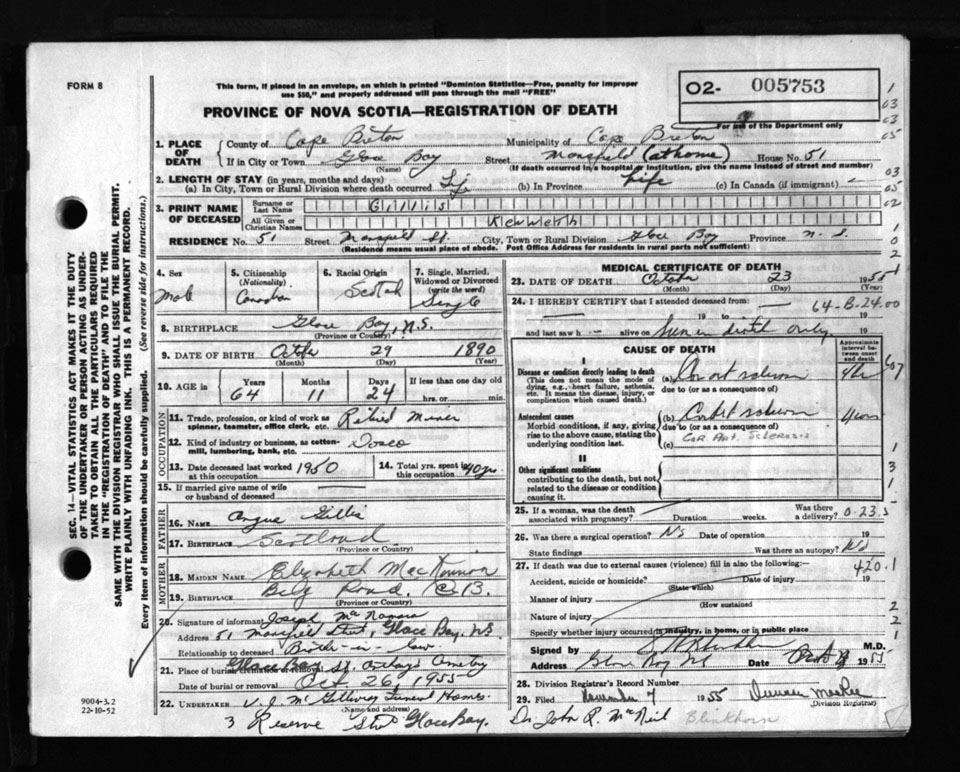 FORM 8
This form, if placed in an envelope, on which is printed "Dominion Statistics—Free, penalty for improper
use $50," and properly addressed will pass through the mail "FREE"
O2- 005753
PROVINCE OF NOVA SCOTIA—REGISTRATION OF DEATH
For use of the Department only
1. PLACE OF DEATH
County of Cape Breton Municipality of Cape Breton
If in City or Town Glace Bay Street Mansfield (at home) House No. 51
(Name) (If death occurred in a hospital or institution, give the name instead of street and number)
2. LENGTH OF STAY (in years, months and days)
(a) In City, Town or Rural Division where death occurred Life (b) In Province Life (c) In Canada (if immigrant) —
3. PRINT NAME OF DECEASED
Surname or Last Name Gillis
All Given or Christian Names Kenneth
RESIDENCE No. 51 Street Mansfield St. City, Town or Rural Division Glace Bay Province N. S.
(Residence means usual place of abode. Post Office Address for residents in rural parts not sufficient)
4. Sex
Male
5. Citizenship (Nationality)
Canadian
6. Racial Origin
Scotch
7. Single, Married, Widowed or Divorced (write the word)
Single
8. BIRTHPLACE Glace Bay, N.S.
(Province or Country)
9. DATE OF BIRTH October 29 1890
(Month) (Day) (Year)
10. AGE in Years Months Days If less than one day old
64 11 24 hrs. or min.
OCCUPATION
11. Trade, profession, or kind of work as spinner, teamster, office clerk, etc. Retired Miner
12. Kind of industry or business, as cotton-mill, lumbering, bank, etc. Dosco
13. Date deceased last worked at this occupation 1950
14. Total yrs. spent in this occupation 40 yrs
15. If married give name of wife or husband of deceased
FATHER
16. NAME Angus Gillis
17. BIRTHPLACE Scotland
(Province or Country)
MOTHER
18. MAIDEN NAME Elizabeth MacKinnon
19. BIRTHPLACE C.B.
(Province or Country)
20. Signature of informant Joseph McNamara
Address 51 Mansfield Street, Glace Bay, NS
Relationship to deceased Brother-in-law
21. Place of burial, cremation or removal Glace Bay St.
Date of burial or removal Oct 26, 1955
22. UNDERTAKER V. J. McGillivray Funeral Homes
(Name and address)
3 Reserve St Glace Bay.
MEDICAL CERTIFICATE OF DEATH
23. DATE OF DEATH October 23 1955
(Month) (Day)
24. I HEREBY CERTIFY that I attended deceased from — 64-B-24.00
19 to 19
and last saw h — alive on 19
CAUSE OF DEATH
Approximate interval between onset and death
I
Disease or condition directly leading to death
(This does not mean the mode of dying, e.g., heart failure, asthenia, etc. It means the disease, injury, or complication which caused death.)
(a)
due to (or as a consequence of)
Antecedent causes
Morbid conditions, if any, giving rise to the above cause, stating the underlying condition last.
(b)
due to (or as a consequence of)
(c) Cor Art. Sclerosis
II
Other significant conditions
contributing to the death, but not related to the disease or condition causing it.
25. If a woman, was the death associated with pregnancy? Duration weeks. Was there a delivery?
26. Was there a surgical operation? No Date of operation 19
State findings Was there an autopsy? No
27. If death was due to external causes (violence) fill in also the following:—
420.1
Accident, suicide or homicide? Date of injury 19
(State which)
Manner of injury
(How sustained)
Nature of injury
Specify whether injury occurred in industry, in home, or in public place
Signed by M.D.
Address Glace Bay NS Date 1955
28. Division Registrar's Record Number
29. Filed November 7 1955 Duncan
(Division Registrar)
Dr John R. McNeil Blinkhorn
SEC. 14—VITAL STATISTICS ACT MAKES IT THE DUTY
OF THE UNDERTAKER OR PERSON ACTING AS UNDER-
TAKER TO OBTAIN ALL THE PARTICULARS REQUIRED
IN THE "REGISTRATION OF DEATH" AND TO FILE THE
SAME WITH THE DIVISION REGISTRAR WHO SHALL ISSUE THE BURIAL PERMIT.
WRITE PLAINLY WITH UNFADING INK. THIS IS A PERMANENT RECORD.
Every item of information should be carefully supplied. (See reverse side for instructions.)
9004-3.2
22-10-52